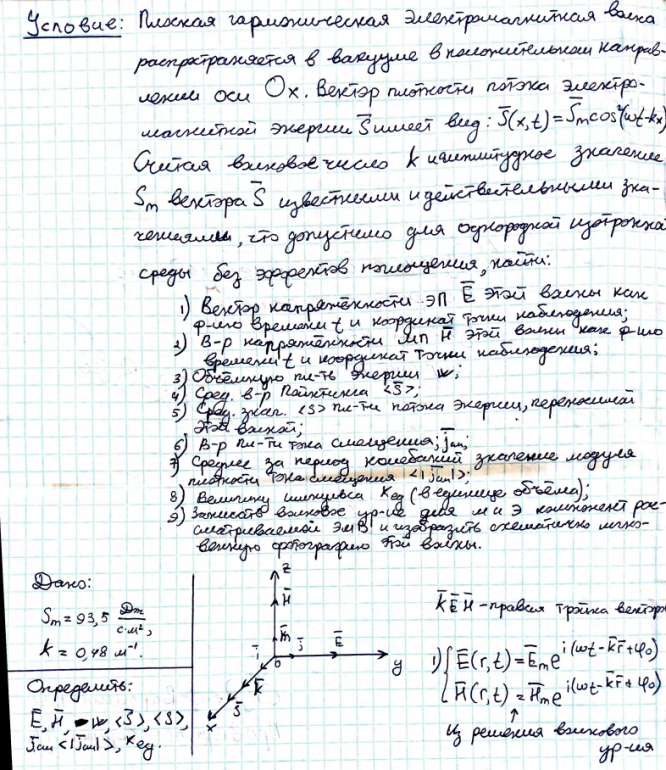 Условие: Плоская гармоническая электромагнитная волна
распространяется в вакууме в положительном направ-
лении оси Ox. Вектор плотности потока электро-
магнитной энергии S̄ имеет вид: S̄(x,t) = S̄m cos²(ωt-kx)
Считая волновое число k и амплитудное значение
Sm вектора S̄ известными и действительными зна-
чениями, что допустимо для однородной изотропной
среды без эффектов поглощения, найти:
1) Вектор напряжённости ЭП Ē этой волны как
ф-цию времени t и координат точки наблюдения;
2) В-р напряжённости МП H̄ этой волны как ф-цию
времени t и координат точки наблюдения;
3) Объёмную пл-ть энергии w;
4) Сред. в-р Пойнтинга <S̄>;
5) Сред. знач. <S> пл-ти потока энергии, переносимой
этой волной;
6) В-р пл-ти тока смещения j̄см;
7) Среднее за период колебаний значение модуля
плотности тока смещения <|j̄см|>;
8) Величину импульса Kед (в единице объёма);
9) Записать волновое ур-ие для м и э компонент рас-
сматриваемой ЭМВ и изобразить схематично мгно-
венную фотографию этой волны.
Дано:
Sm = 93,5 Дж/с·м²;
k = 0,48 м⁻¹.
Определить:
Ē, H̄, w, <S̄>, <S>,
j̄см <|j̄см|>, Kед.
z
H̄
m̄
ī
0
j̄
Ē
y
k̄
S̄
x
k̄ Ē H̄ - правая тройка вектор
1) { Ē(r,t) = Ēm e^i(ωt-k̄r̄+φ0)
H̄(r,t) = H̄m e^i(ωt-k̄r̄+φ0)
из решения волнового
ур-ия